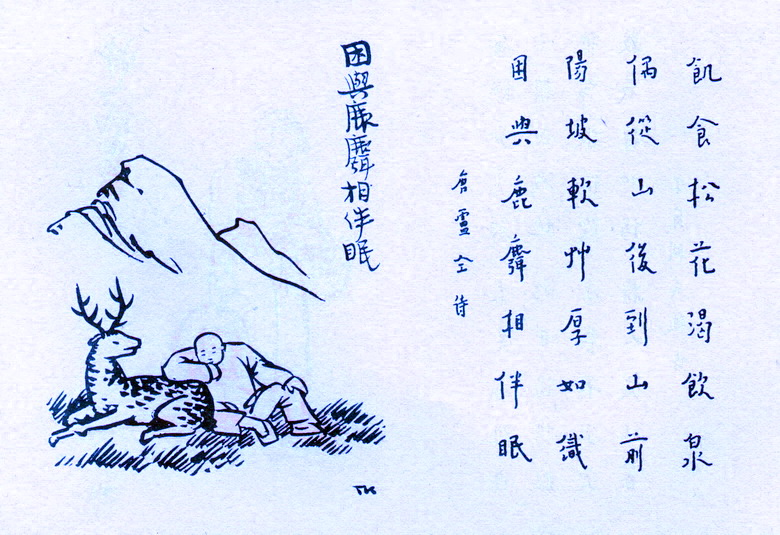 飢食松花渴飲泉
偶從山後到山前
陽坡軟艸厚如織
困與鹿麛相伴眠
唐盧仝詩
困與鹿麛相伴眠
TK